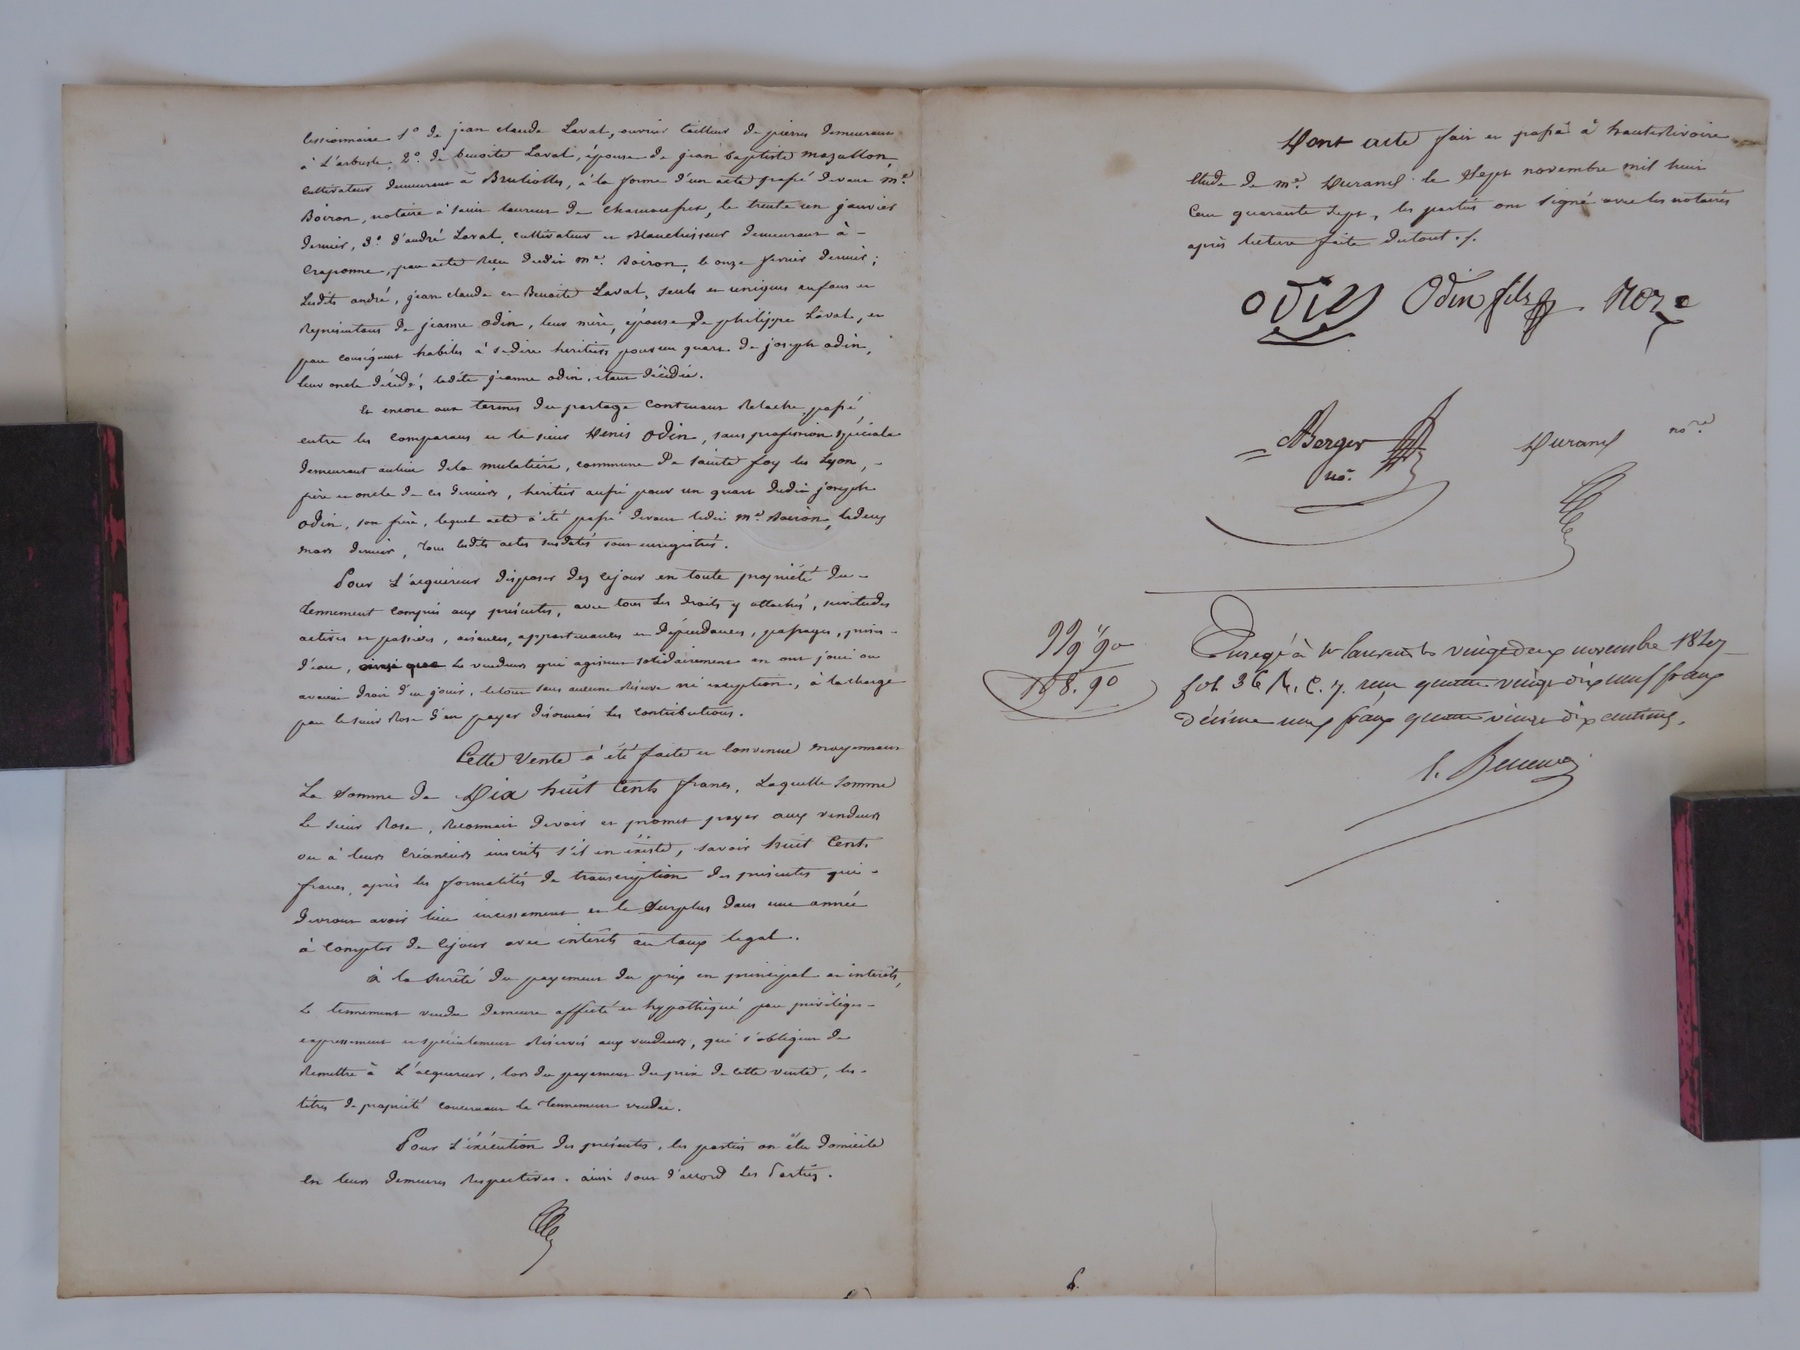 cessionnaire 1o de jean claude Laval, ouvrier tailleur de pierres demeurant
à L'arbresle, 2o. de benoite Laval, épouse de jean baptiste mazallon,
cultivateur demeurant à Brullioles, à la forme d'un acte passé devant me.
Boiron, notaire à saint laurent de chamousset, le trente un janvier
dernier, 3o d'andré Laval, cultivateur et blanchisseur demeurant à -
Craponne, par acte reçu dudit me. Boiron, le onze fevrier dernier;
Lesdits andré, jean claude et Benoite Laval, seuls et uniques enfans et
representans de jeanne odin, leur mère, épouse de philippe Laval, et
par conséquent habiles à se dire heritiers pour un quart de joseph odin,
leur oncle décédé, ladite jeanne odin, étant décédée.
Et encore aux termes du partage contenant relache passé
entre les comparans et le sieur Denis Odin, sans profession spéciale
demeurant au lieu de la mulatière, commune de sainte foy les Lyon, -
frère et oncle de ces derniers, heritier aussi pour un quart dudit joseph
Odin, son frère, lequel acte a été passé devant ledit me. Boiron, le deux
mars dernier, tous lesdits actes susdatés sont enregistrés.
Pour L'acquereur disposer dez cejour en toute propriété du -
tennement compris aux présentes, avec tous les droits y attachés, servitudes
actives et passives, aisances, appartenances et dépendances, passages, prises
d'eau, ainsi que les vendeurs qui agissent solidairement en ont joui ou
avaient droit d'en jouir, letout sans aucune réserve ni exception, à la charge
par le sieur Rose d'en payer désormais les contributions.
Cette Vente a été faite et convenue moyennant
La somme de Dix huit Cents francs, Laquelle somme
le sieur Rose, reconnait devoir et promet payer aux vendeurs
ou à leurs créanciers inscrits s'il en éxiste, savoir huit Cents
francs, après les formalités de transcription des présentes qui -
devront avoir lieu incessament et le surplus dans une année
à compter de cejour avec intérêts au taux legal.
à la sureté du payement du prix en principal et intérêts,
le tennement vendu demeure affecté et hypothèqué par privilège -
expressement et spécialement réservés aux vendeurs, qui s'obligent de
remettre à L'acquereur, lors du payement du prix de cette vente, les -
titres de propriété concernant le tennement vendu.
Pour L'éxécution des présentes, les parties on élu domicile
en leurs demeures respectives. ainsi sont d'accord les Parties.
Dont acte fait et passé à hauterivoire
étude de me. Durand le Sept novembre mil huit
Cent quarante sept, les parties ont signé avec les notaires
après lecture faite dutout./.
odin Odin fils Roze
Berger Durand nore
no.
99 90
Enregé à St laurent le vingt deux novembre 1847
118.90
fol. 36 R. C. 7. reçu quatre vingt dix neuf francs
décime neuf francs quatre vingt dix centimes.
6.